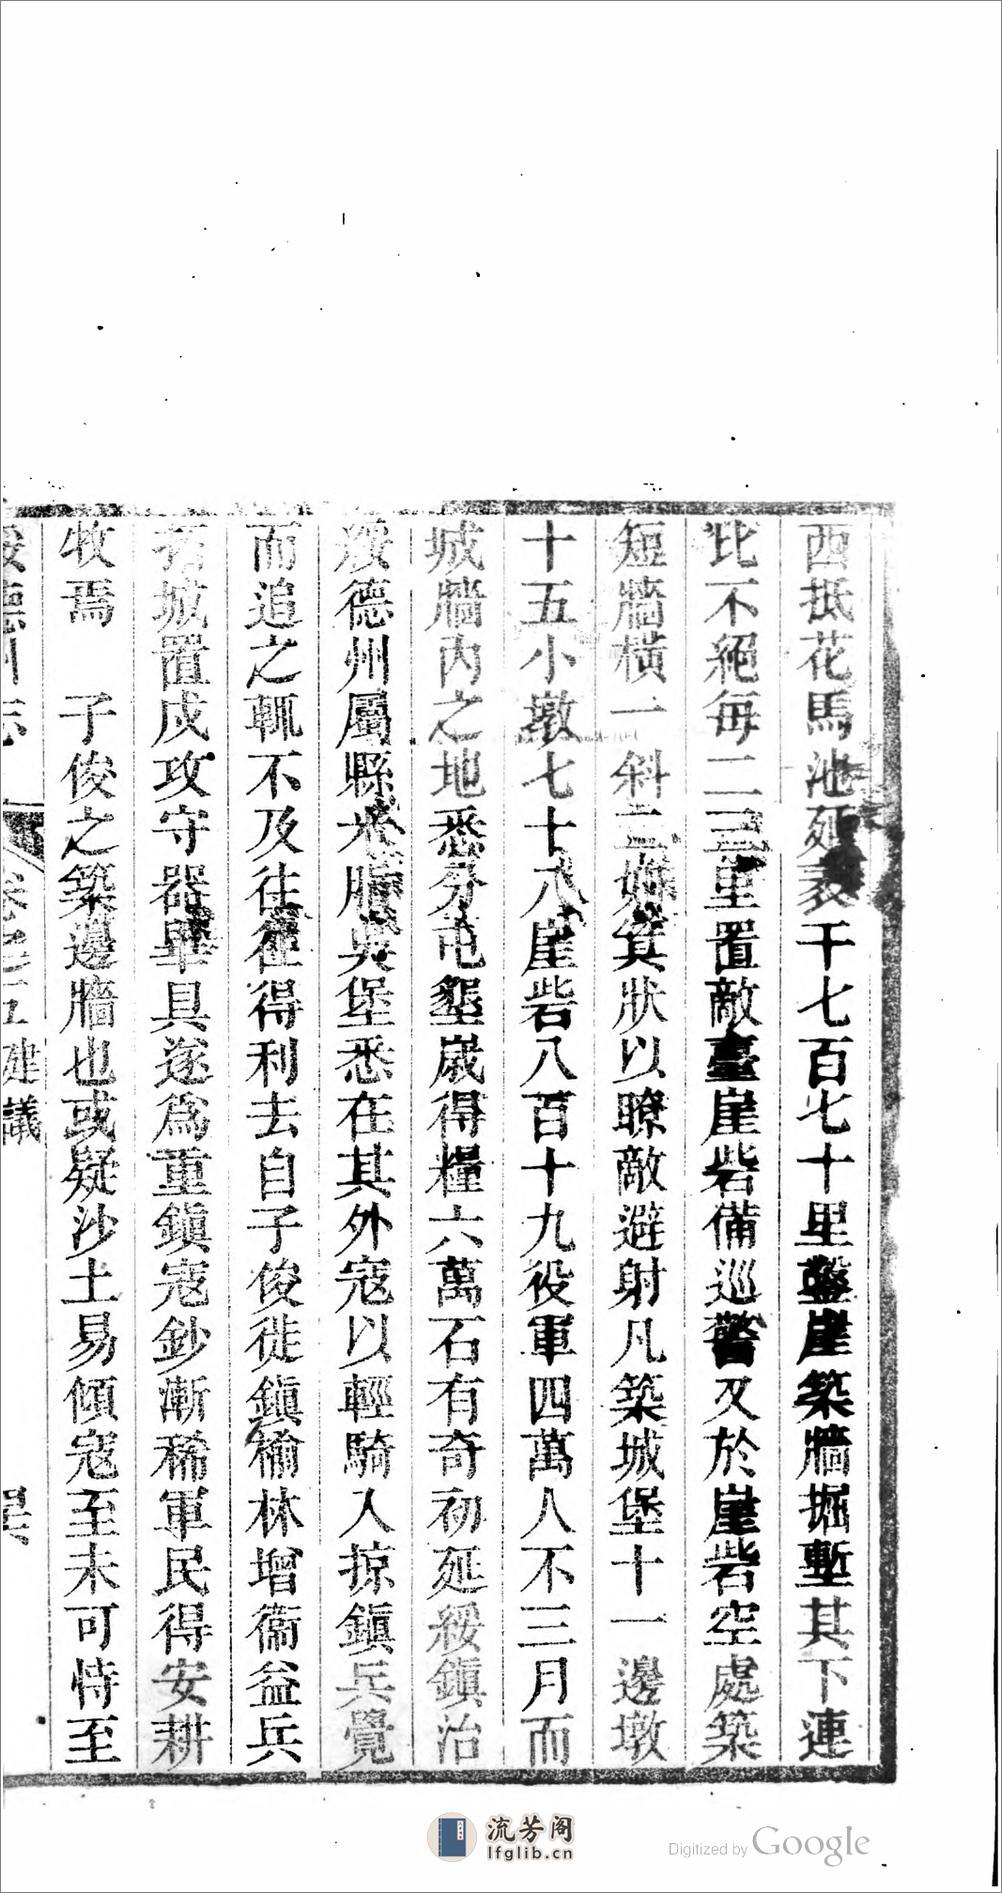 西抵花馬池延袤千七百七十里鑿崖築牆掘塹其下連
比不絕每二三里置敵臺崖砦備巡警又於崖砦空處築
短牆橫一斜二如箕狀以瞭敵避射凡築城堡十一邊墩
十五小墩七十八崖砦八百十九役軍四萬人不三月而
城牆內之地悉分屯墾歲得糧六萬石有奇初延綏鎮治
綏德州屬縣米脂吳堡悉在其外寇以輕騎入掠鎮兵覺
而追之輒不及往往得利去自子俊徙鎮榆林增衞益兵
拓城置戍攻守器畢具遂爲重鎮寇鈔漸稀軍民得安耕
牧焉　子俊之築邊牆也或疑沙土易傾寇至未可恃至
綏德州志 卷之五 建議
流芳阁
lfglib.cn
Digitized by Google